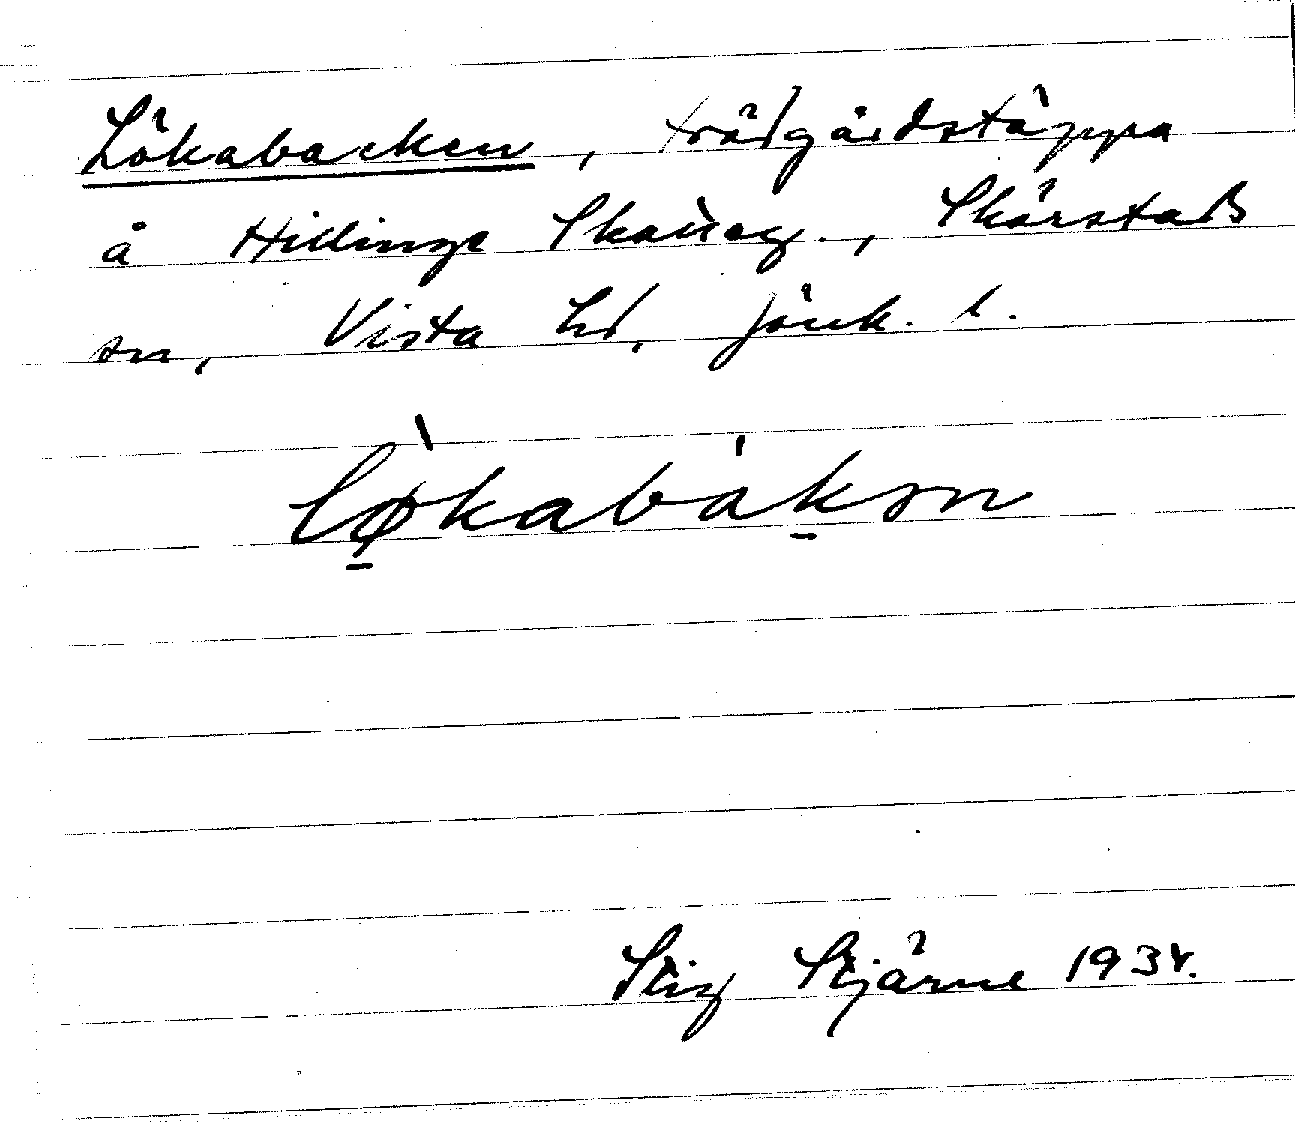 Lökabacken, trädgårdstäppa
å Hillinge Skatteg., Skärstads
sn, Vista hd, Jönk. l.
løkabàkən
Stig Stjärne 1934.